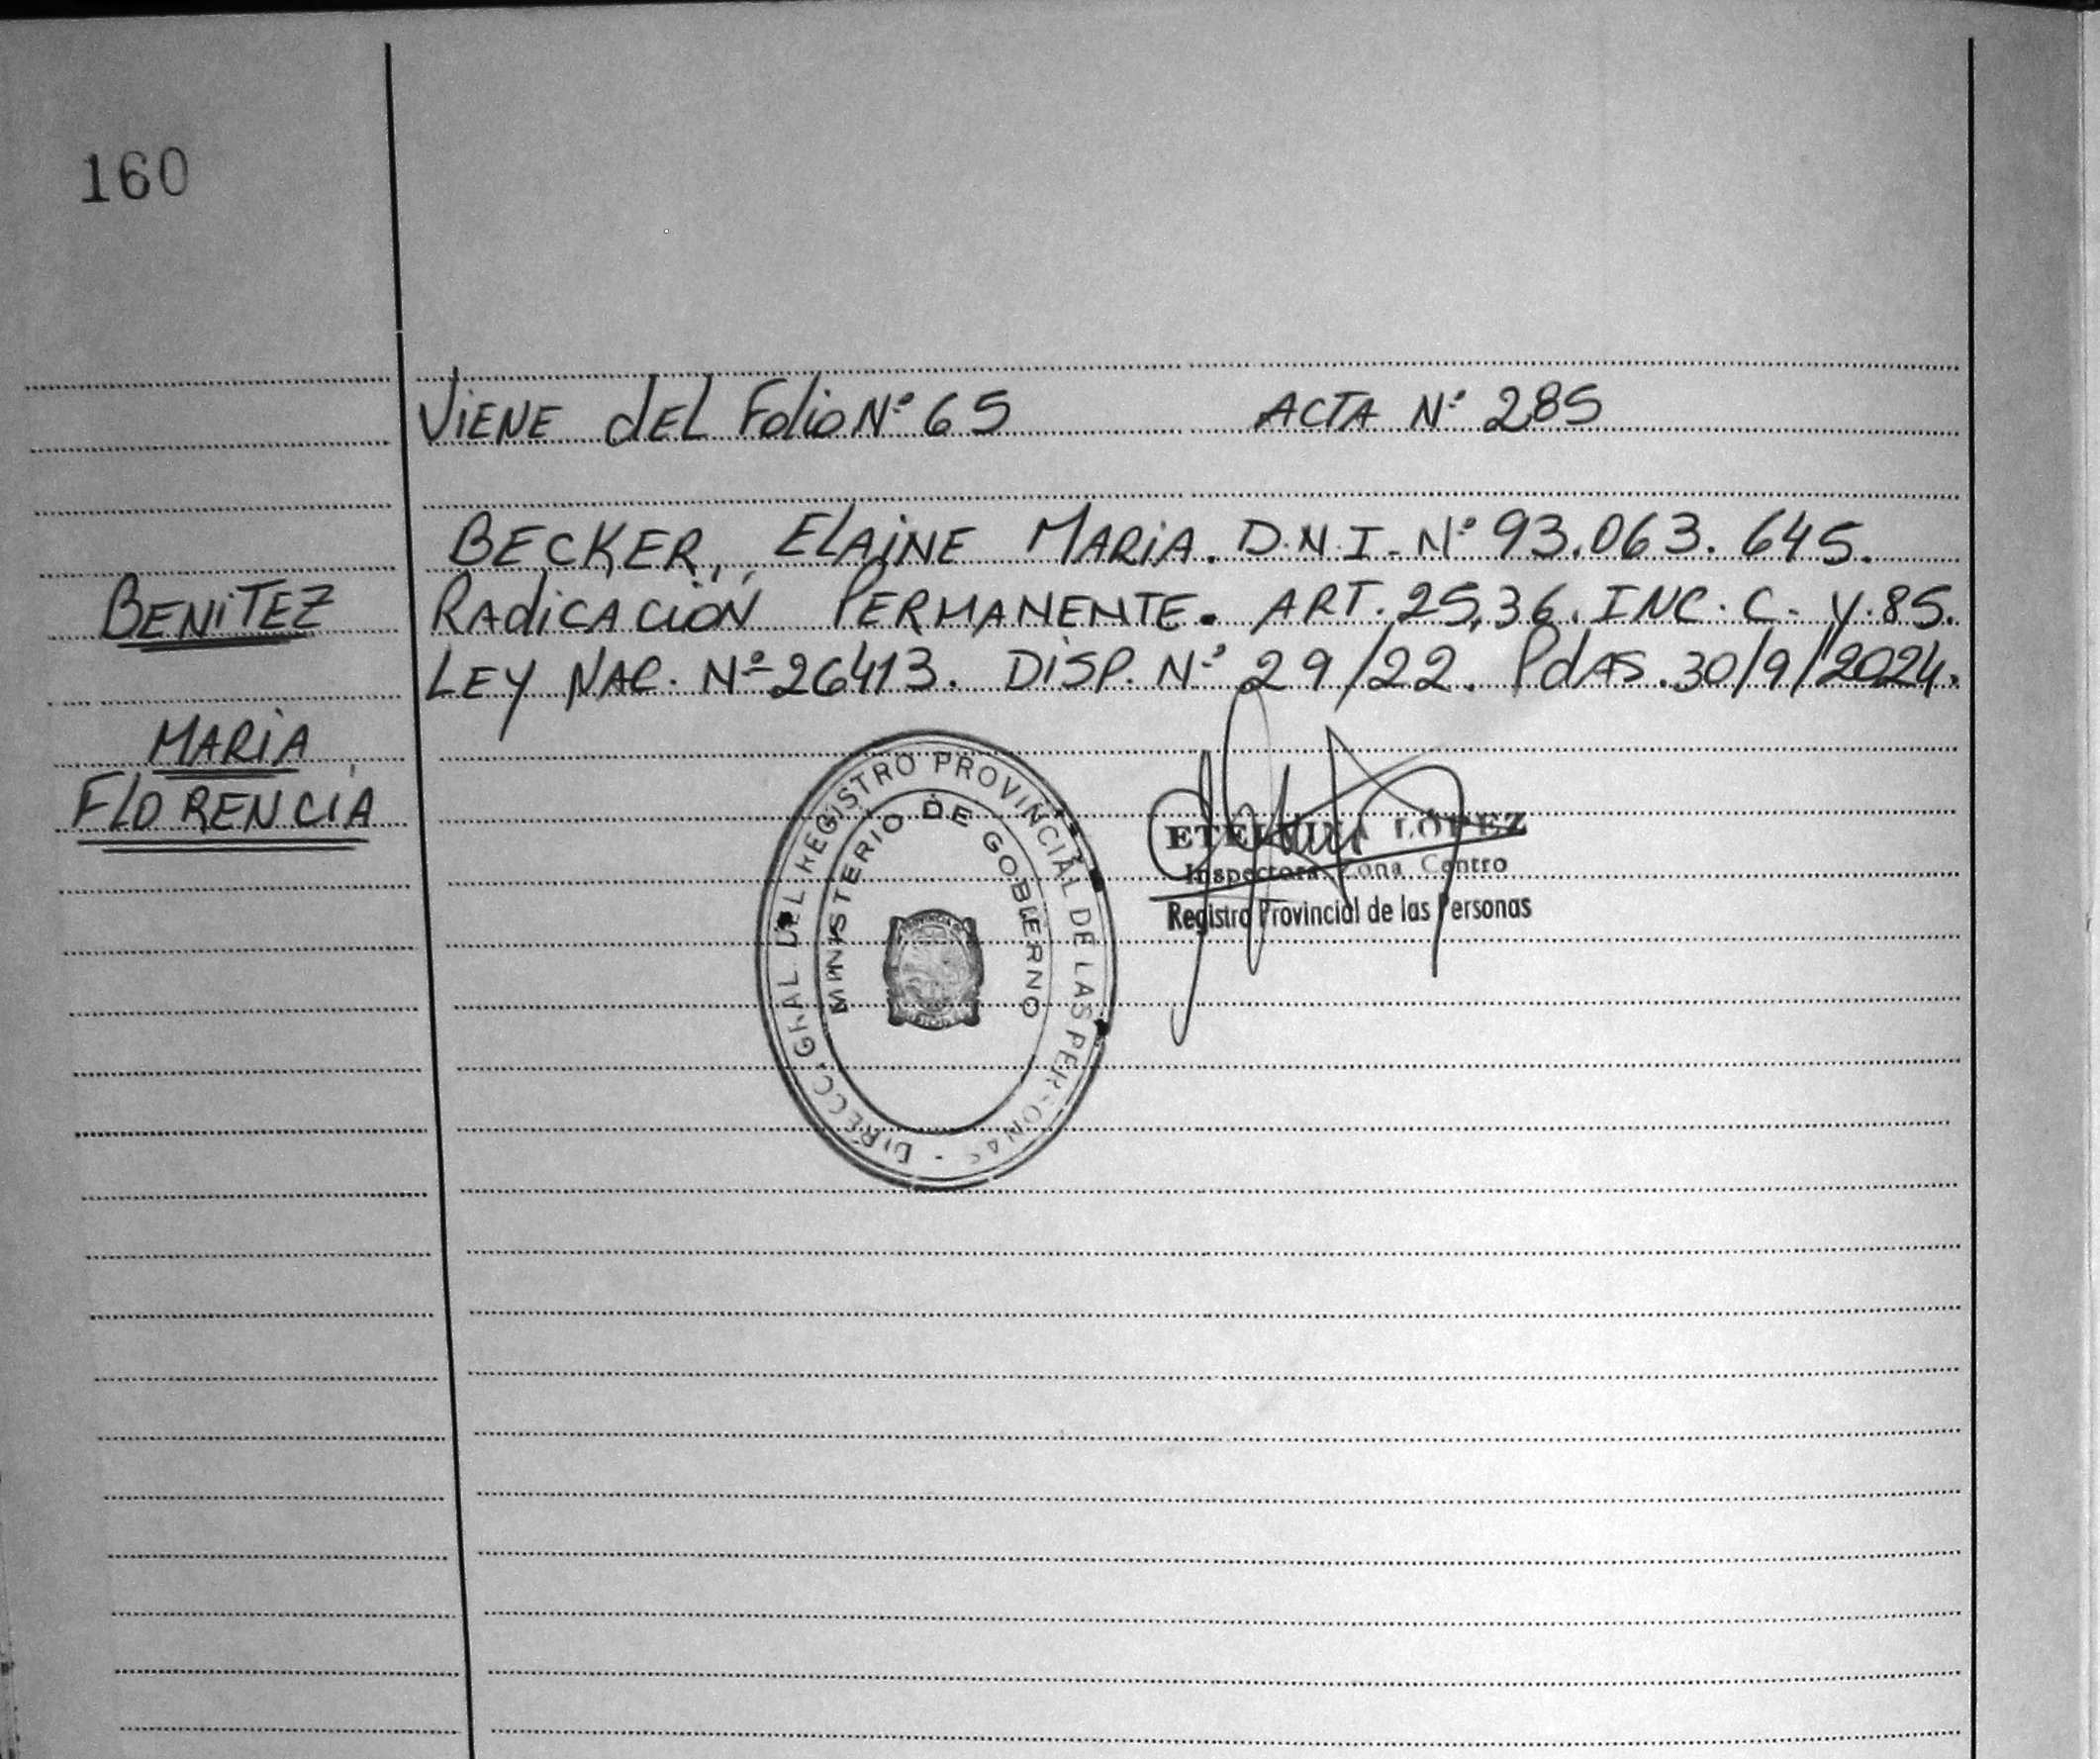 160
VIENE dEL Folio Nº 65 ACTA Nº 285
BECKER, ELAINE MARIA. D.N.I. Nº 93.063.645.
BENITEZ
RAdiCACION PERMANENTE. ART. 25,36. INC. C. Y. 85.
LEY NAC. Nº 26413. DISP. Nº 29/22. PdAS. 30/9/2024.
MARIA
FLORENCIA
DIRECC. GRAL. DEL REGISTRO PROVINCIAL DE LAS PERSONAS -
MINISTERIO DE GOBIERNO
ETELVINA LÓPEZ
Inspectora Zona Centro
Registro Provincial de las Personas